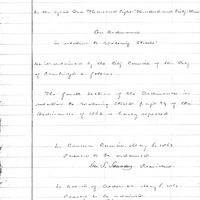 In the Year One Thousand Eight Hundred and Sixty
An Ordinance
in relation to Watering Streets
Be it ordained by the City Council of the City
of Cambridge as follows.
The fourth section of the Ordinance in
relation to Watering Streets page 94 of the
Ordinances of 1856 is hereby repealed
In Common Council May 6, 186
Passed to be ordained.
President.
In Board of Aldermen May 6, 186
Passed to be ordained